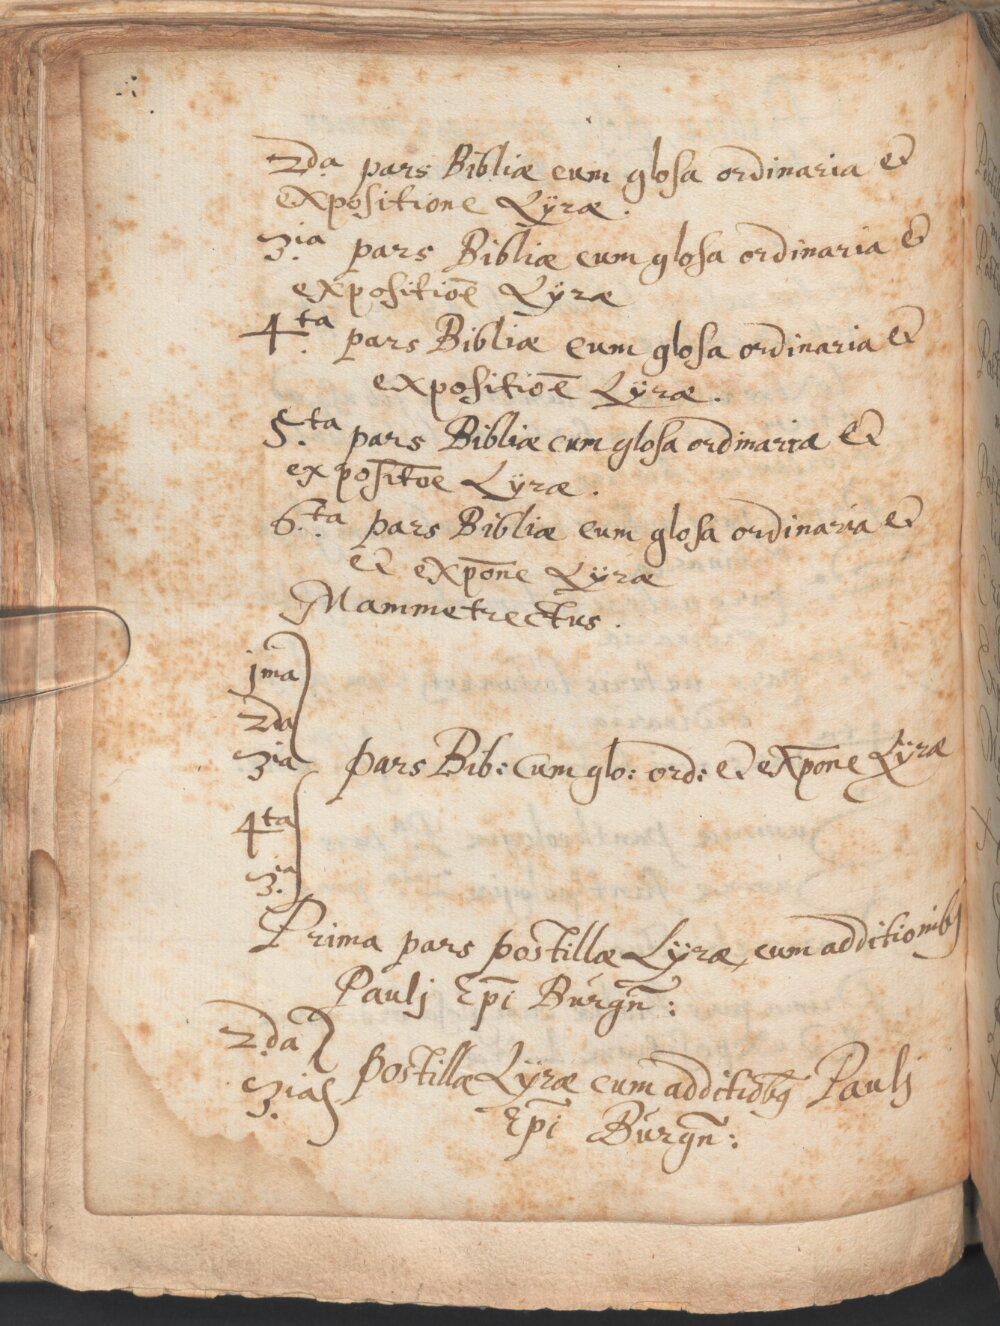 2da. pars Bibliæ cum glosa ordinaria et
expositione Lÿræ.
3.ia pars Bibliæ cum glosa ordinaria et
expositiōē Lÿræ
4.ta pars Bibliæ cum glosa ordinaria et
expositiōē Lÿræ.
5.ta pars Bibliæ cum glosa ordinariæ et
expositōe Lÿræ.
6.ta pars Bibliæ cum glosa ordinaria et
et expōne Lÿræ
Mammetrectus.
jma
2da
3ia pars Bib: cum glo: ord: et expōne Lÿræ
4ta
3.ia
Prima pars postillæ Lÿræ, cum additionibq
Paulj Epī Burgn̄:
2.da
3.ia postillæ Lÿræ cum additiōbq Paulj
Epī Burgn̄: